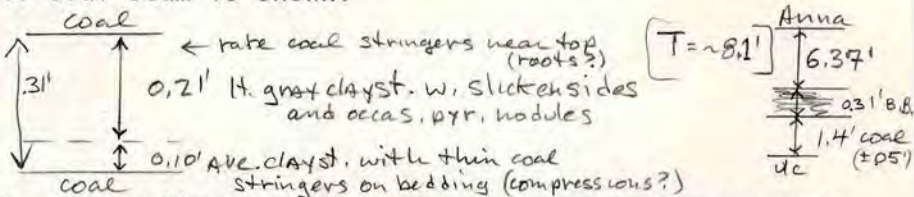 coal
← rare coal stringers near top
(roots?)
.31'
0.21' lt. gray clayst. w. slickensides
and occas. pyr. nodules
0.10' Ave. clayst. with thin coal
stringers on bedding (compressions?)
coal
T = ~8.1'
Anna
6.37'
0.31' B.B.
1.4' coal
(±.05')
uc